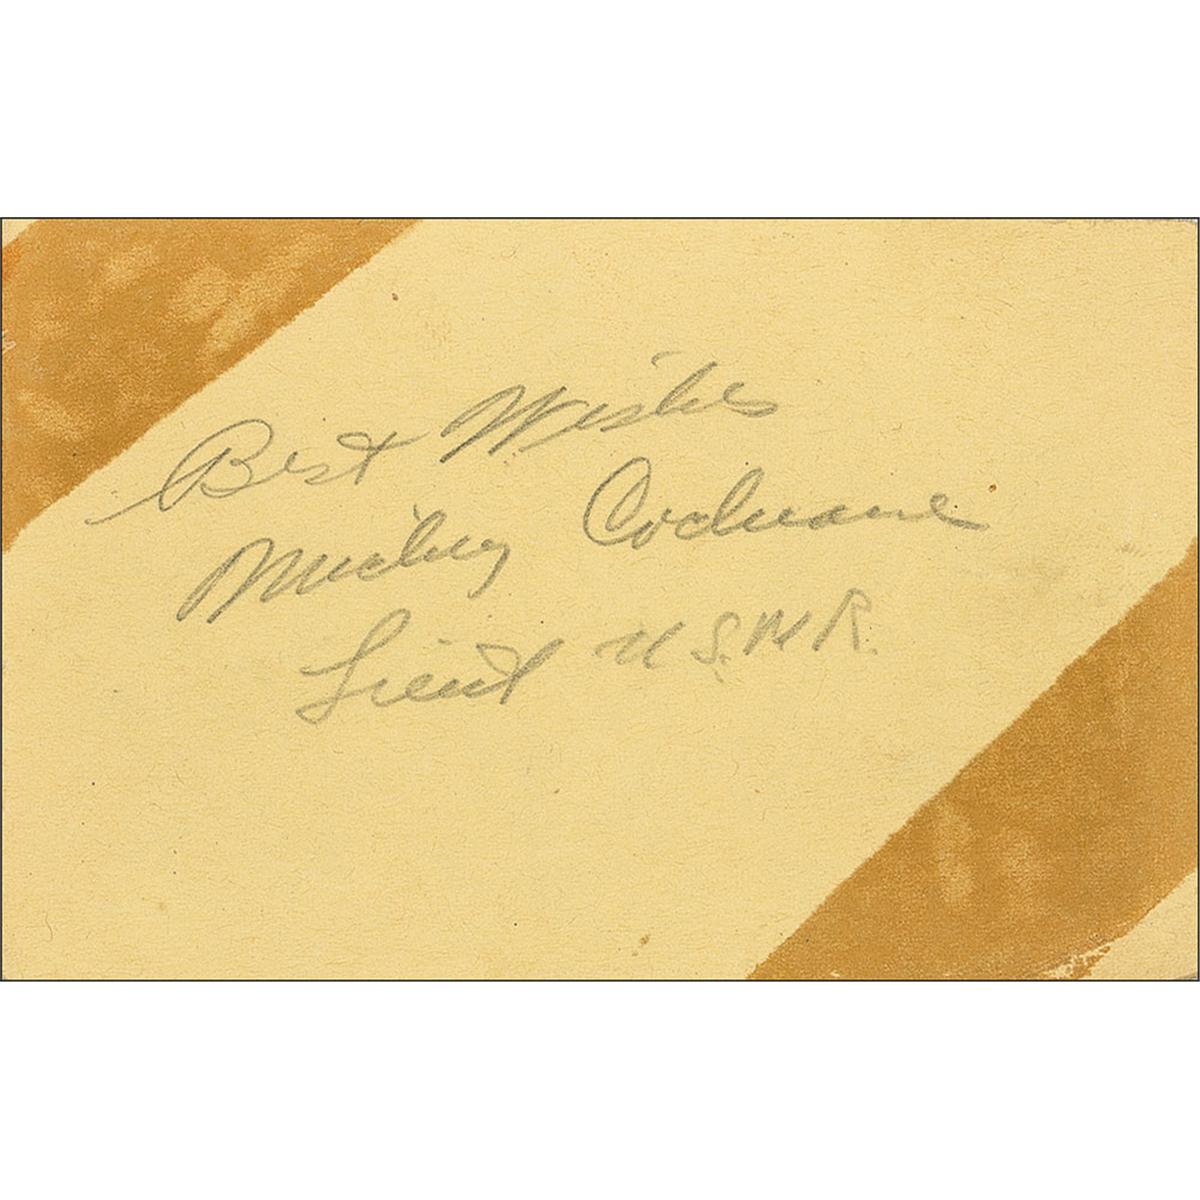 Best Wishes
Mickey Cochrane
Lieut U.S.N.R.